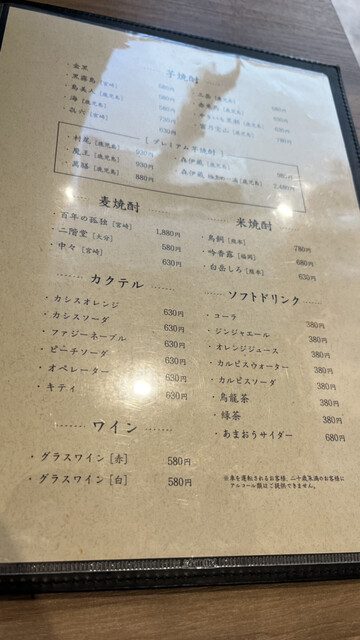 芋焼酎
・金黒
・黒霧島 [宮崎]
・島美人 [鹿児島]
・海 [鹿児島]
・㐂六 [宮崎]
・三岳 [鹿児島]
[プレミアム芋焼酎]
・村尾 [鹿児島] 930円
・魔王 [鹿児島] 930円
・萬膳 [鹿児島] 880円
・森伊蔵 [鹿児島]
麦焼酎
・百年の孤独 [宮崎] 1,880円
・二階堂 [大分] 580円
・中々 [宮崎] 630円
米焼酎
・鳥飼 [熊本] 780円
・吟香露 [福岡] 680円
・白岳しろ [熊本] 630円
カクテル
・カシスオレンジ 630円
・カシスソーダ 630円
・ファジーネーブル 630円
・ピーチソーダ 630円
・オペレーター 630円
・キティ 630円
ソフトドリンク
・コーラ 380円
・ジンジャエール 380円
・オレンジジュース 380円
・カルピスウォーター 380円
・カルピスソーダ 380円
・烏龍茶 380円
・緑茶 380円
・あまおうサイダー 680円
ワイン
・グラスワイン [赤] 580円
・グラスワイン [白] 580円
※車を運転されるお客様、二十歳未満のお客様に
アルコール類はご提供できません。